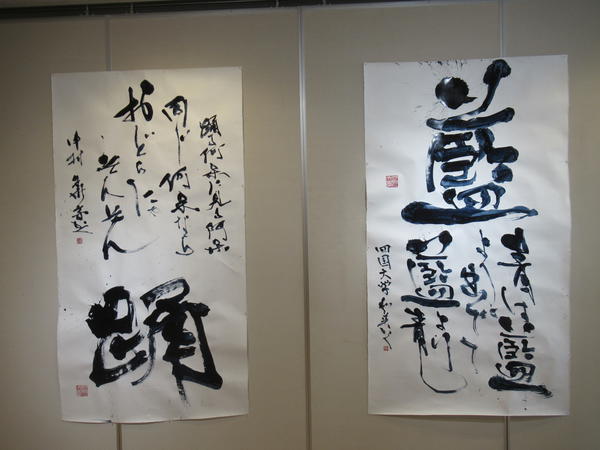 踊る阿呆に見る阿呆
同じ阿呆なら
おどらにゃ
そんそん
中村
踊
藍
青は藍
より出でて
藍より青し
四国大学